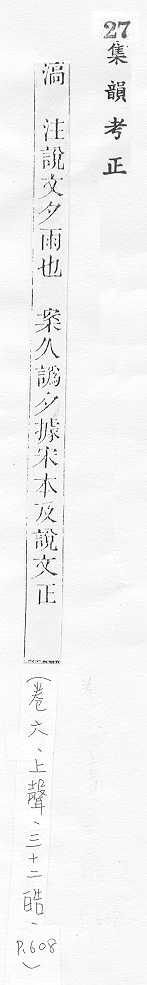 27集韻考正
滈　注說文夕雨也　案久譌夕據宋本及說文正
(卷六、上聲、三十二皓、P.608)